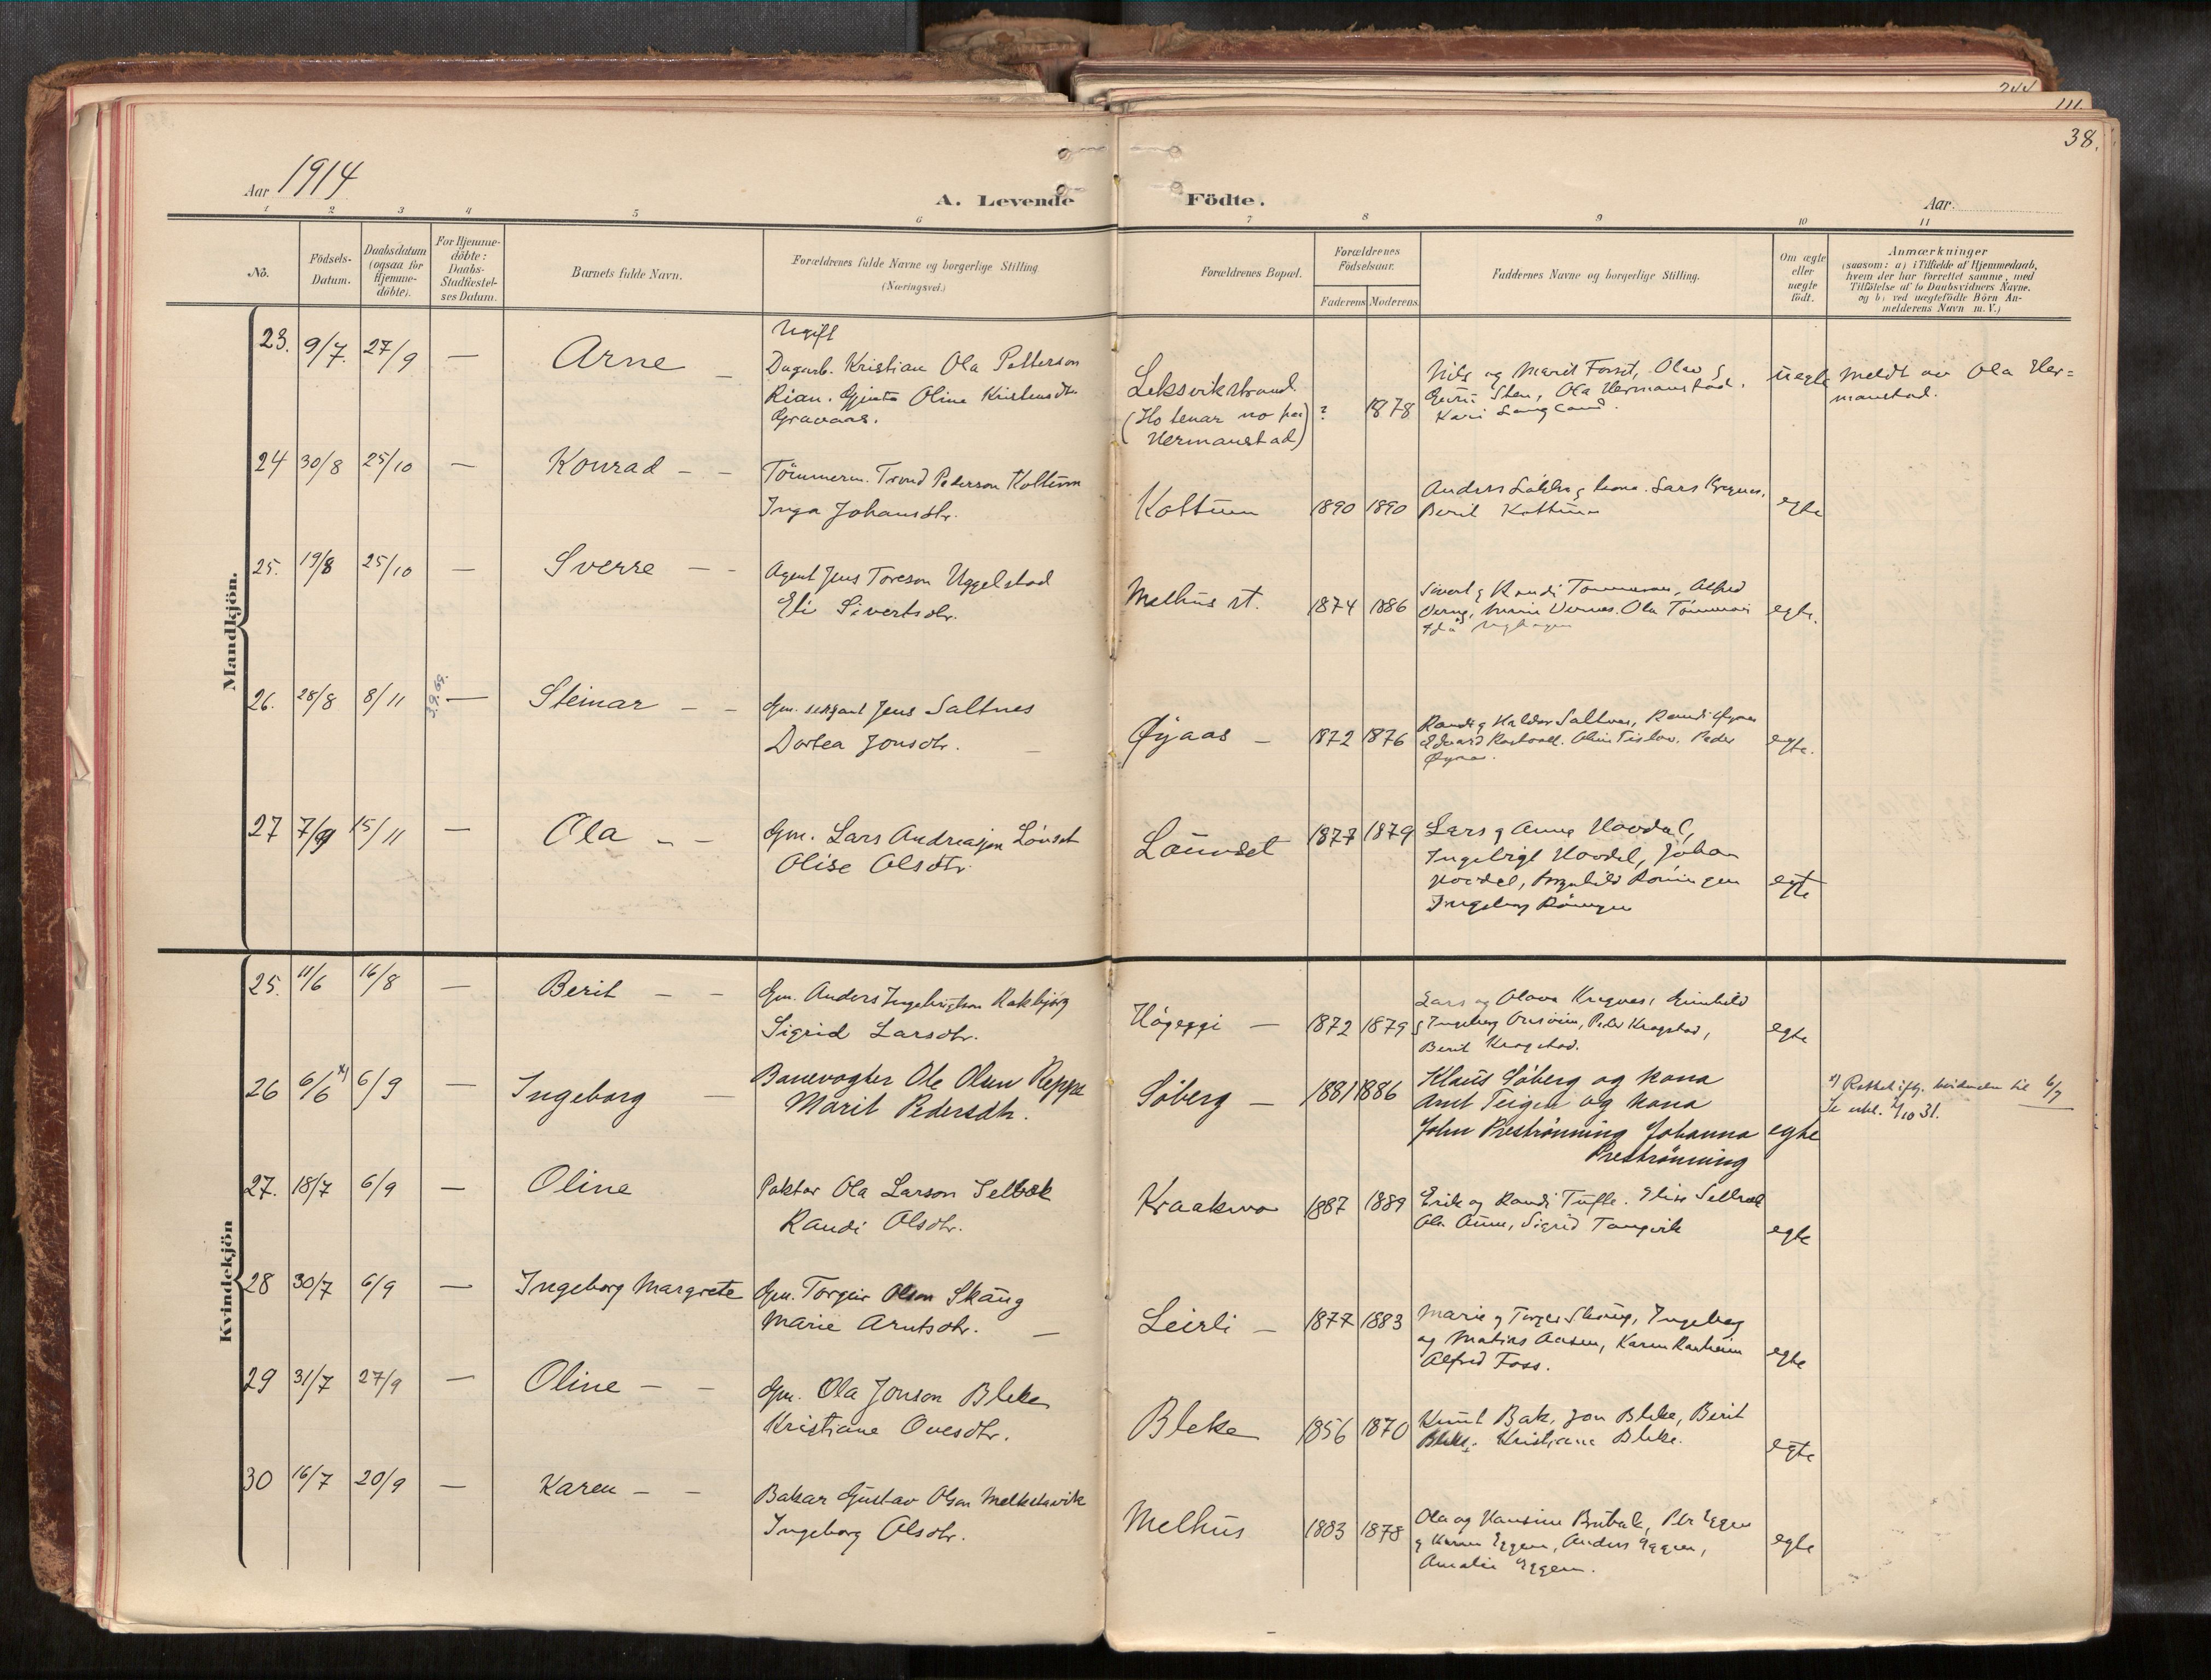 244
111.
38.
Aar 1914
A. Levende Födte.
Aar
1 2 3 4 5 6 7 8 9 10 11
No.
Födsels-
Datum.
Daabsdatum
(ogsaa for
Hjemme-
döbte).
For Hjemme-
döbte:
Daabs-
Stadfæstel-
ses Datum.
Barnets fulde Navn.
Forældrenes fulde Navne og borgerlige Stilling
(Næringsvei.)
Forældrenes Bopæl.
Forældrenes
Födselsaar.
Faderens Moderens
Faddernes Navne og borgerlige Stilling.
Om ægte
eller
uægte
födt.
Anmærkninger
(saasom: a) i Tilfælde af Hjemmedaab,
hvem der har forrettet samme, med
Tilföielse af to Daabsvidners Navne.
og b) ved uægtefödte Börn An-
melderens Navn m. V.)
Mandkjön.
23. 9/7. 27/9 — Arne —
Ugift
Dagarb. Kristian Ola Petterson
Rian. Gjenta Oline Kristensdtr.
Gravaas.
Leksvikstrand
(Ho tenar no paa
Hermanstad)
? 1878
Nils og Marit Forset, Olav g
Guru Sten, Ola Hermanstad.
Kari Langland.
uegte
Meldt av Ola Her=
manstad.
24 30/8 25/10 — Konrad — —
Tömmerm. Trond Pederson Kottum
Inga Johansdtr.
Kottum 1890 1890
Anders kona. Lars
Berit Kottum
egte
25. 19/8 25/10 — Sverre — —
Agent Jens Toreson Uggelstad
Eli Sivertsdtr.
Melhus st. 1874 1886
Sivert g Randi Tømmeraas, Alfred
Vernes. Ola
egte.
26. 28/8 8/11 3.9.69. — Steinar — —
Gm. sersjant Jens Saltnes
Dortea Jonsdtr. —
Øyaas — 1872 1876
Randi g Haldor Saltnes, Randi Øyaas
Edvard Peder
Øyaas.
egte.
27 7/9 15/11 — Ola — —
Gm. Lars Andreasson Lønset
Olise Olsdtr.
Laurset 1877 1879
Lars g Anne Hovdal,
Ingebrigt Hovdal, Johan
Hovdal, Ragnhild Rønningen
Ingeborg Rønningen
egte
Kvindekjön
25. 11/6 16/8 — Berit — —
Gm. Anders Ingebrigtson Rakbjørg
Sigrid Larsdtr.
Høgeggi — 1872 1879
Lars og Olava Kregnes, Gunhild
g Ingeborg Peder Kragstad,
Berit Kragstad.
egte
26 6/6 x) 6/9 — Ingeborg —
Banevogter Ole Olsen Reppe
Marit Pedersdtr.
Søberg — 1881 1886
Klaus Søberg og kona
Arnt Teigen og kona
John Prestrønning Johanna
Prestrønning
egte
x) til 6/7
31.
27. 18/7 6/9 — Oline
Paktar Ola Larson Selbæk
Randi Olsdtr.
Kraakmo 1887 1889
Erik og Randi Tufte. Elise Selbæk
Ola Aune, Sigrid Tangvik
egte
28 30/7 6/9 — Ingeborg Margrete
Gm. Torgeir Olson Skaug
Marie Arntsdtr. —
Leirli — 1877 1883
Marie g Torgeir Skaug, Ingeborg
og Matias Aasen, Karen Ranheim
Alfred Foss.
egte
29 31/7 27/9 — Oline — —
Gm. Ola Jonson Bleke
Kristiane Ovesdtr.
Bleke 1856 1870
Knut Bak, Jon Bleke, Berit
Bleke. Kristiane Bleke.
egte
30 16/7 20/9 — Karen — —
Bakar Gustav Olson Melkstavik
Ingeborg Olsdtr.
Melhus 1883 1878
Ola og Hansine Brubak, Per Eggen
g Karen Eggen, Anders Eggen,
Amalie Eggen.
egte